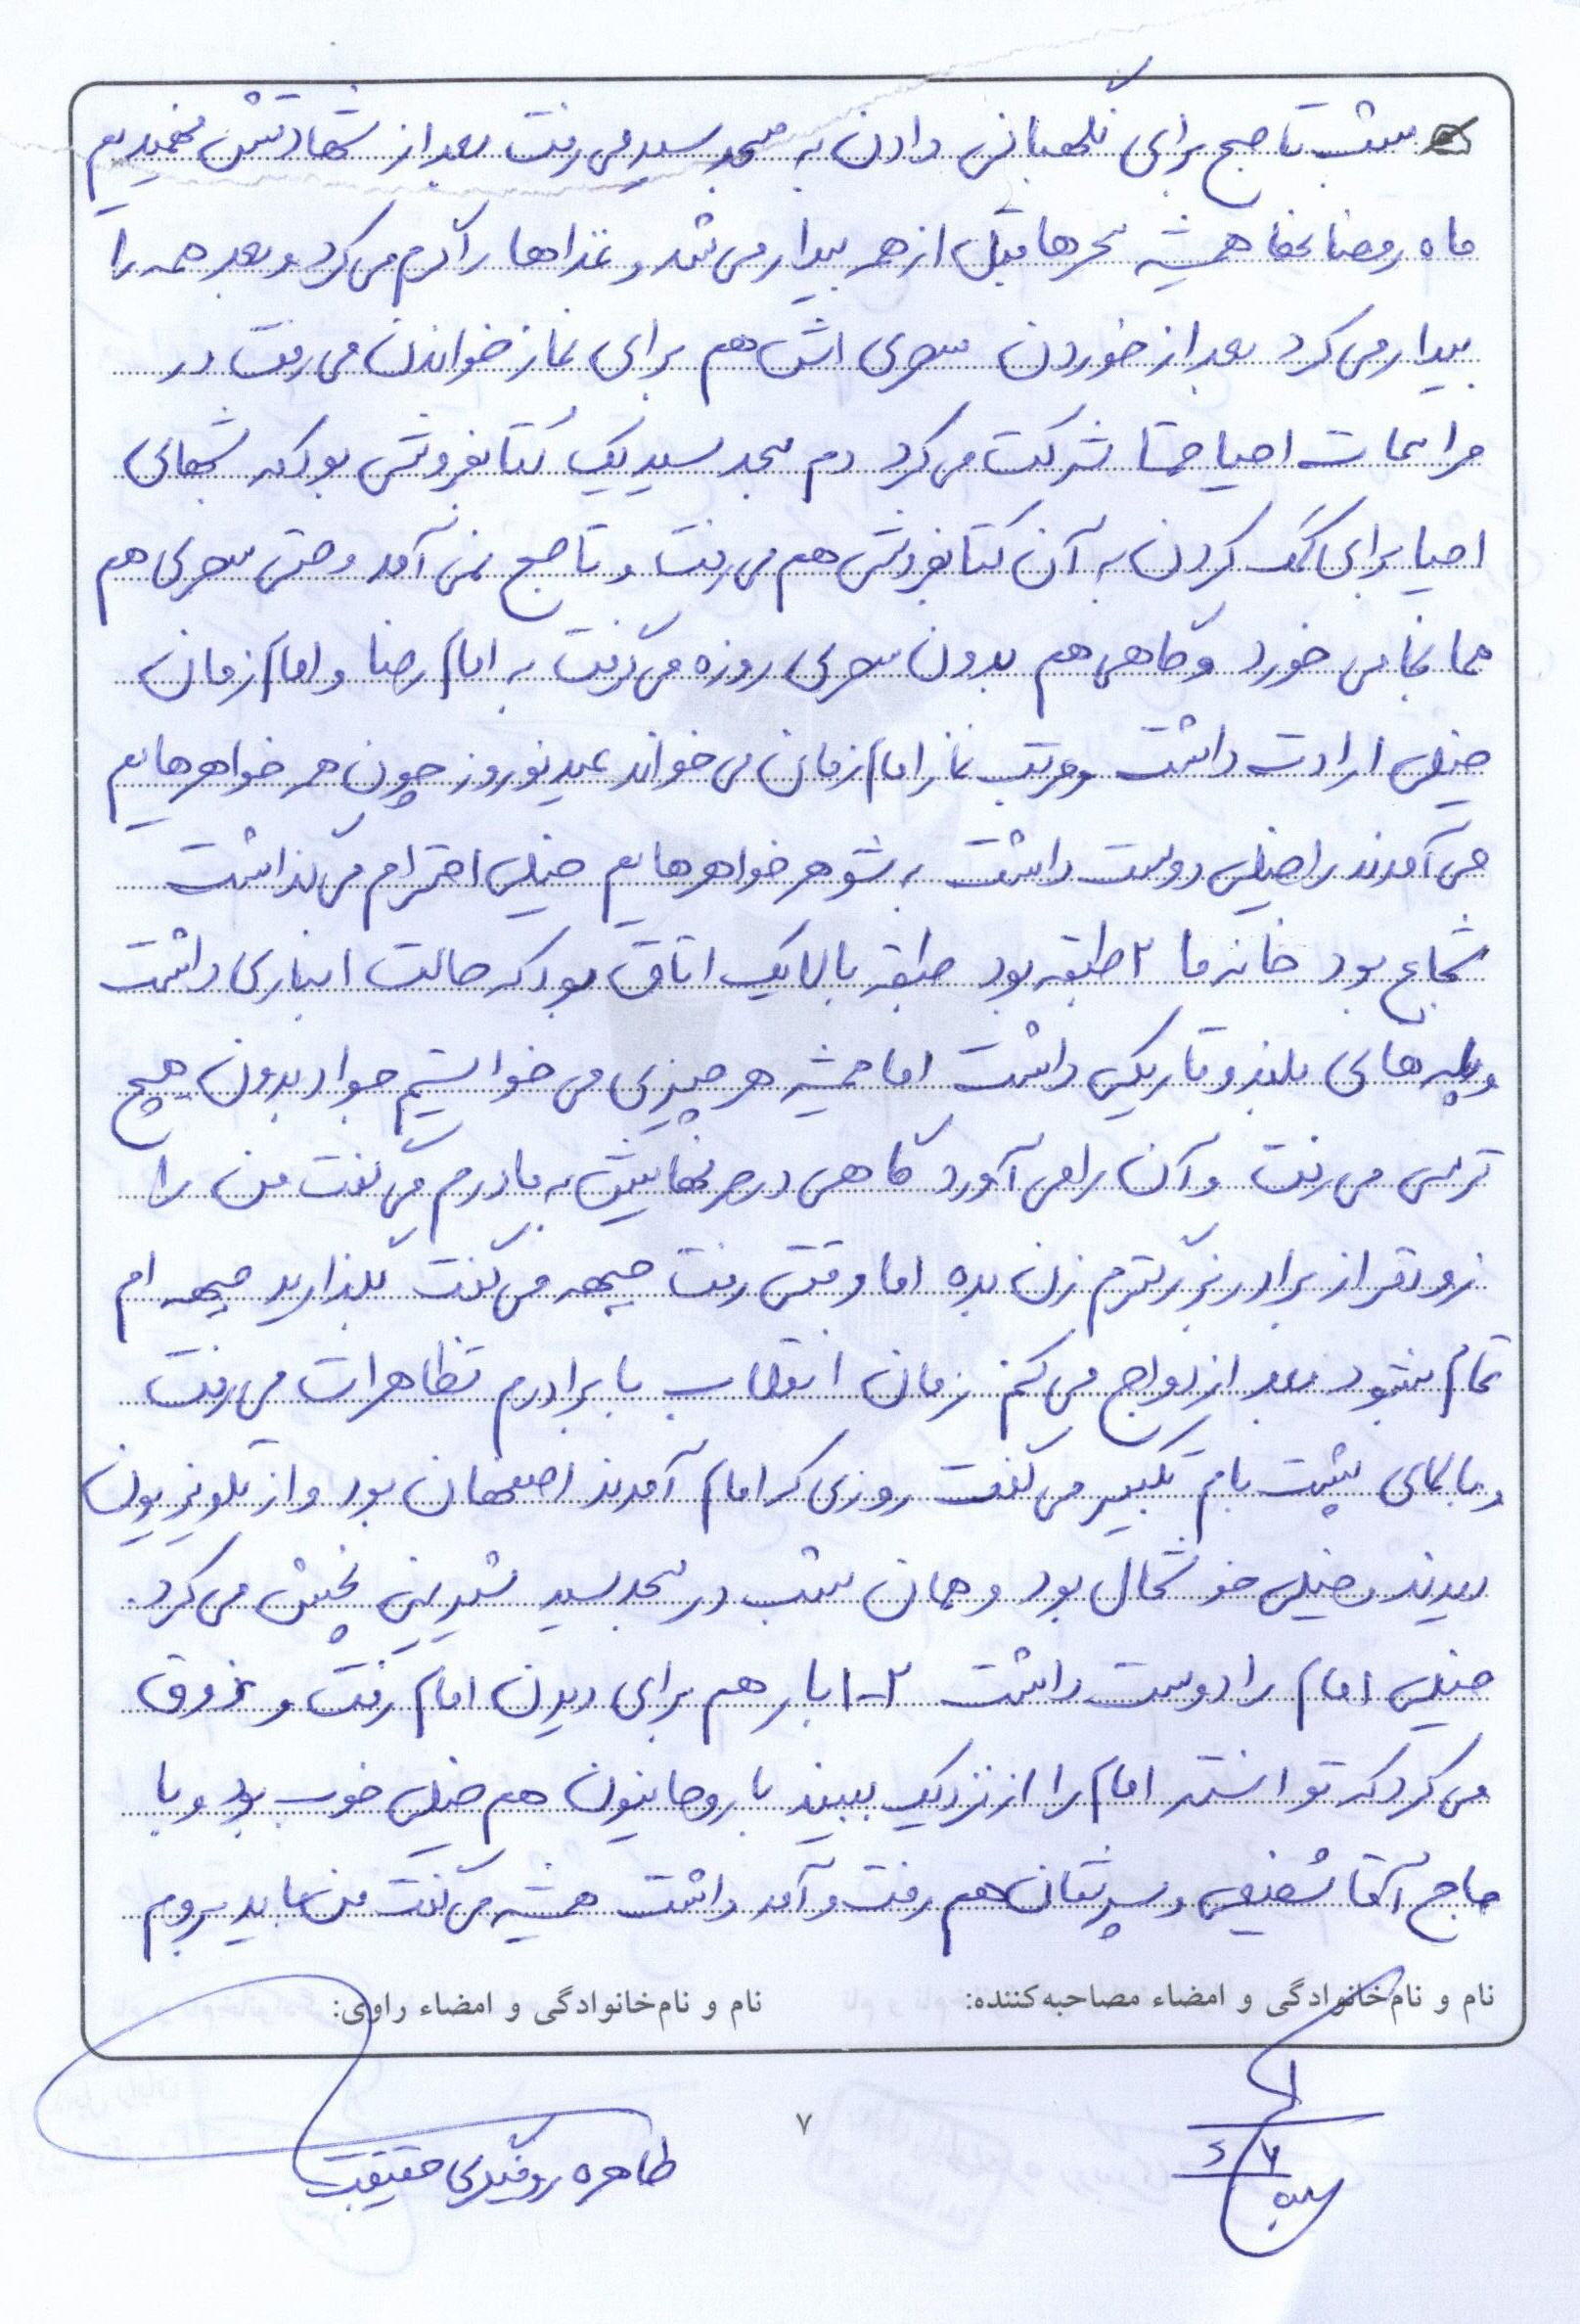 شب تا صبح برای نگهبانی دادن به مسجد سید می رفت بعد از شهادتش فهمیدیم
ماه رمضانها همیشه سحرها قبل از همه بیدار می شد و غذاها را گرم می کرد و بعد همه را
بیدار می کرد بعد از خوردن سحری اش هم برای نماز خواندن می رفت در
مراسمات احیا حتما شرکت می کرد دم مسجد سید یک کتابفروشی بود که شبهای
احیا برای کمک کردن به آن کتابفروشی هم می رفت و تا صبح نمی آمد و حتی سحری هم
همانجا می خورد و گاهی هم بدون سحری روزه می گرفت به امام رضا و امام زمان
خیلی ارادت داشت و مرتب نماز امام زمان می خواند عید نوروز چون هر خواهرهایم
می آمدند را خیلی دوست داشت به شوهر خواهرهایم خیلی احترام می گذاشت
شجاع بود خانه ما ۲ طبقه بود طبقه بالا یک اتاق بود که حالت انباری داشت
و پله های بلند و تاریکی داشت اما همیشه هر چیزی می خواستیم جواد بدون هیچ
ترسی می رفت و آن را می آورد گاهی در حرفهایش به مادرم می گفت من را
زودتر از برادر بزرگترم زن بده اما وقتی رفت جبهه می گفت بگذارید جبهه ام
تمام بشود بعد ازدواج می کنم زمان انقلاب با برادرم تظاهرات می رفت
و بالای پشت بام تکبیر می گفت روزی که امام آمدند اصفهان بود و از تلویزیون
دیدند خیلی خوشحال بود و همان شب در مسجد سید شیرینی پخش می کرد.
خیلی امام را دوست داشت ۲-۱ بار هم برای دیدن امام رفت و ذوق
می کرد که توانسته امام را از نزدیک ببیند با روحانیون هم خیلی خوب بود و با
حاج آقا شفیعی و پسرشان هم رفت و آمد داشت همیشه می گفت من باید بروم
نام و نام‌خانوادگی و امضاء مصاحبه‌کننده: نام و نام‌خانوادگی و امضاء راوی:
۷
طاهره روفیگری حقیقت